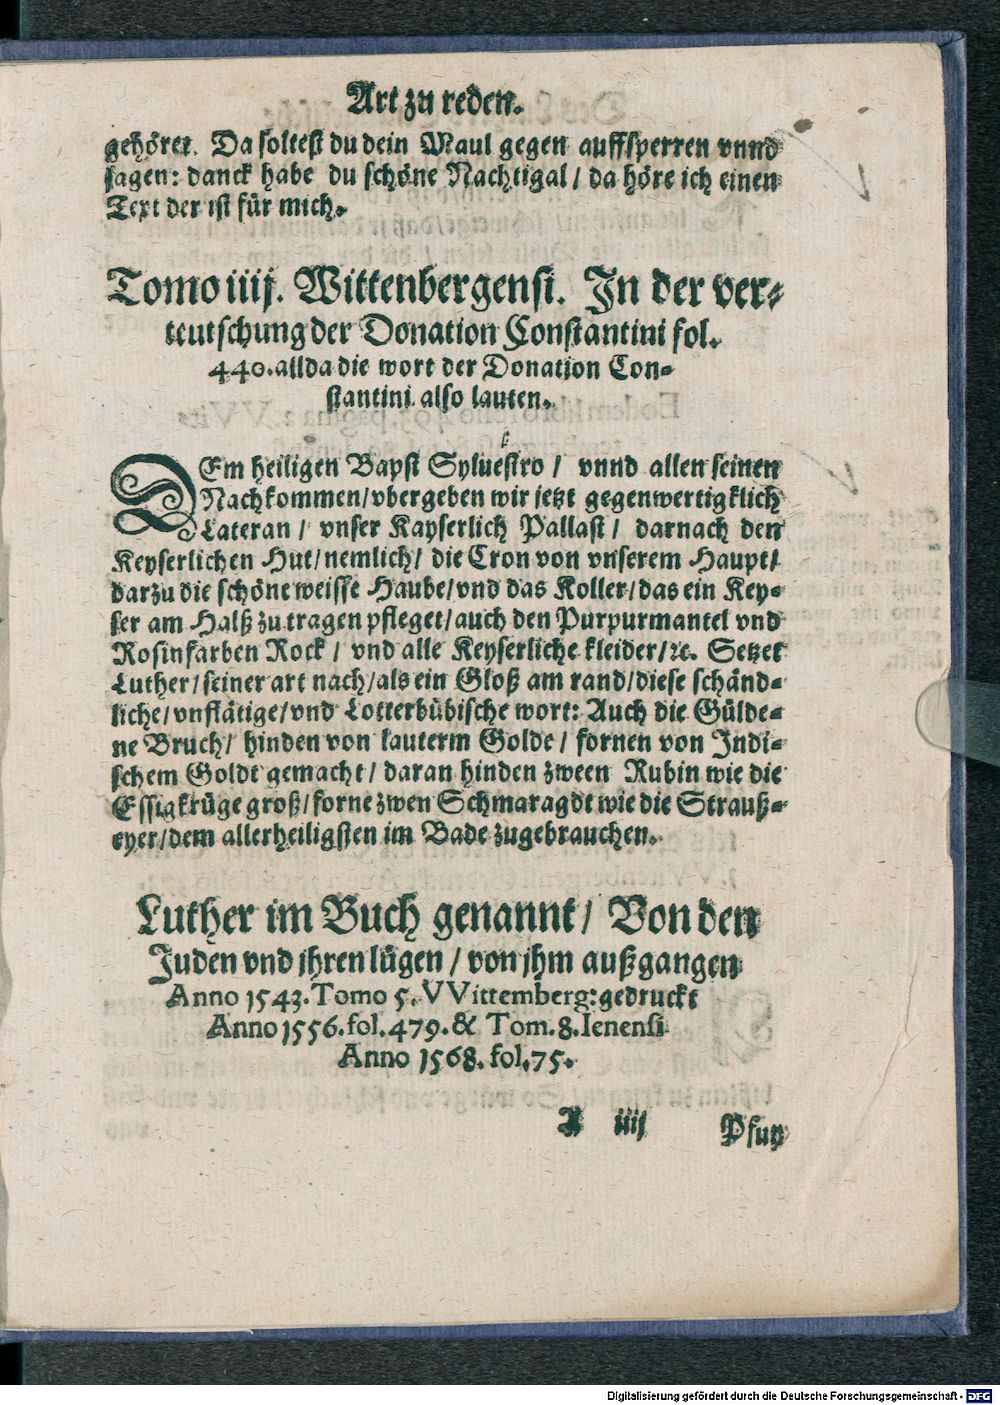 Art zu reden.
gehöret. Da soltest du dein Maul gegen auffsperren vnnd
sagen: danck habe du schöne Nachtigal / da höre ich einen
Text der ist für mich.
Tomo iiij. Wittenbergensi. In der ver-
teutschung der Donation Constantini fol.
440. allda die wort der Donation Con-
stantini also lauten.
DEm heiligen Bapst Syluestro / vnnd allen seinen
Nachkommen / vbergeben wir jetzt gegenwertigklich
Lateran / vnser Kayserlich Pallast / darnach den
Keyserlichen Hut / nemlich / die Cron von vnserem Haupt /
darzu die schöne weisse Haube / vnd das Koller / das ein Key-
ser am Halß zu tragen pfleget / auch den Purpurmantel vnd
Rosinfarben Rock / vnd alle Keyserliche kleider / ꝛc. Setzet
Luther / seiner art nach / als ein Gloß am rand / diese schänd-
liche / vnflätige / vnd Lotterbübische wort: Auch die Gülde-
ne Bruch / hinden von lauterm Golde / fornen von Indi-
schem Goldt gemacht / daran hinden zween Rubin wie die
Essigkrüge groß / forne zwen Schmaragdt wie die Strauß-
eyer / dem allerheiligsten im Bade zugebrauchen.
Luther im Buch genannt / Von den
Juden vnd jhren lügen / von jhm außgangen
Anno 1543. Tomo 5. VVittemberg: gedruckt
Anno 1556. fol. 479. & Tom. 8. Ienensi
Anno 1568. fol. 75.
iiij Pfuy
Digitalisierung gefördert durch die Deutsche Forschungsgemeinschaft - DFG